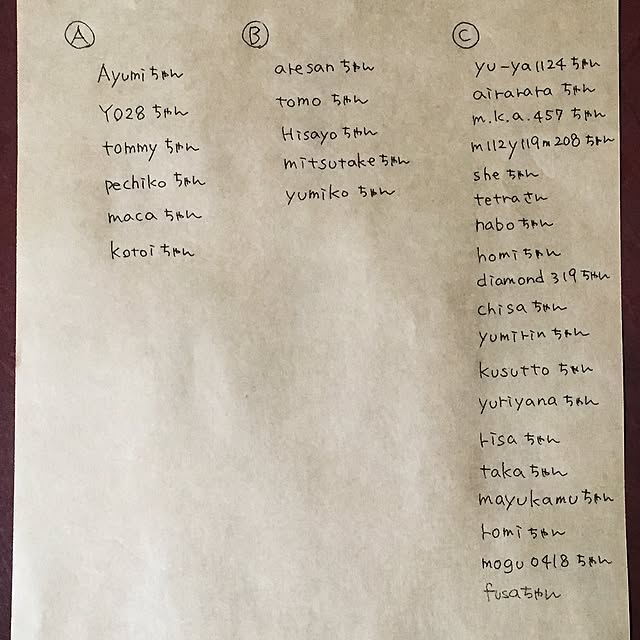 Ⓐ
Ayumiちゃん
YO28ちゃん
tommyちゃん
pechikoちゃん
macaちゃん
kotoiちゃん
Ⓑ
aresanちゃん
tomoちゃん
Hisayoちゃん
mitsutakeちゃん
yumikoちゃん
Ⓒ
yu-ya1124ちゃん
airararaちゃん
m.k.a.457ちゃん
m112y119m208ちゃん
sheちゃん
tetraさん
naboちゃん
homiちゃん
diamond319ちゃん
chisaちゃん
yumirinちゃん
kusuttoちゃん
yuriyanaちゃん
risaちゃん
takaちゃん
mayukamuちゃん
romiちゃん
mogu0418ちゃん
fusaちゃん